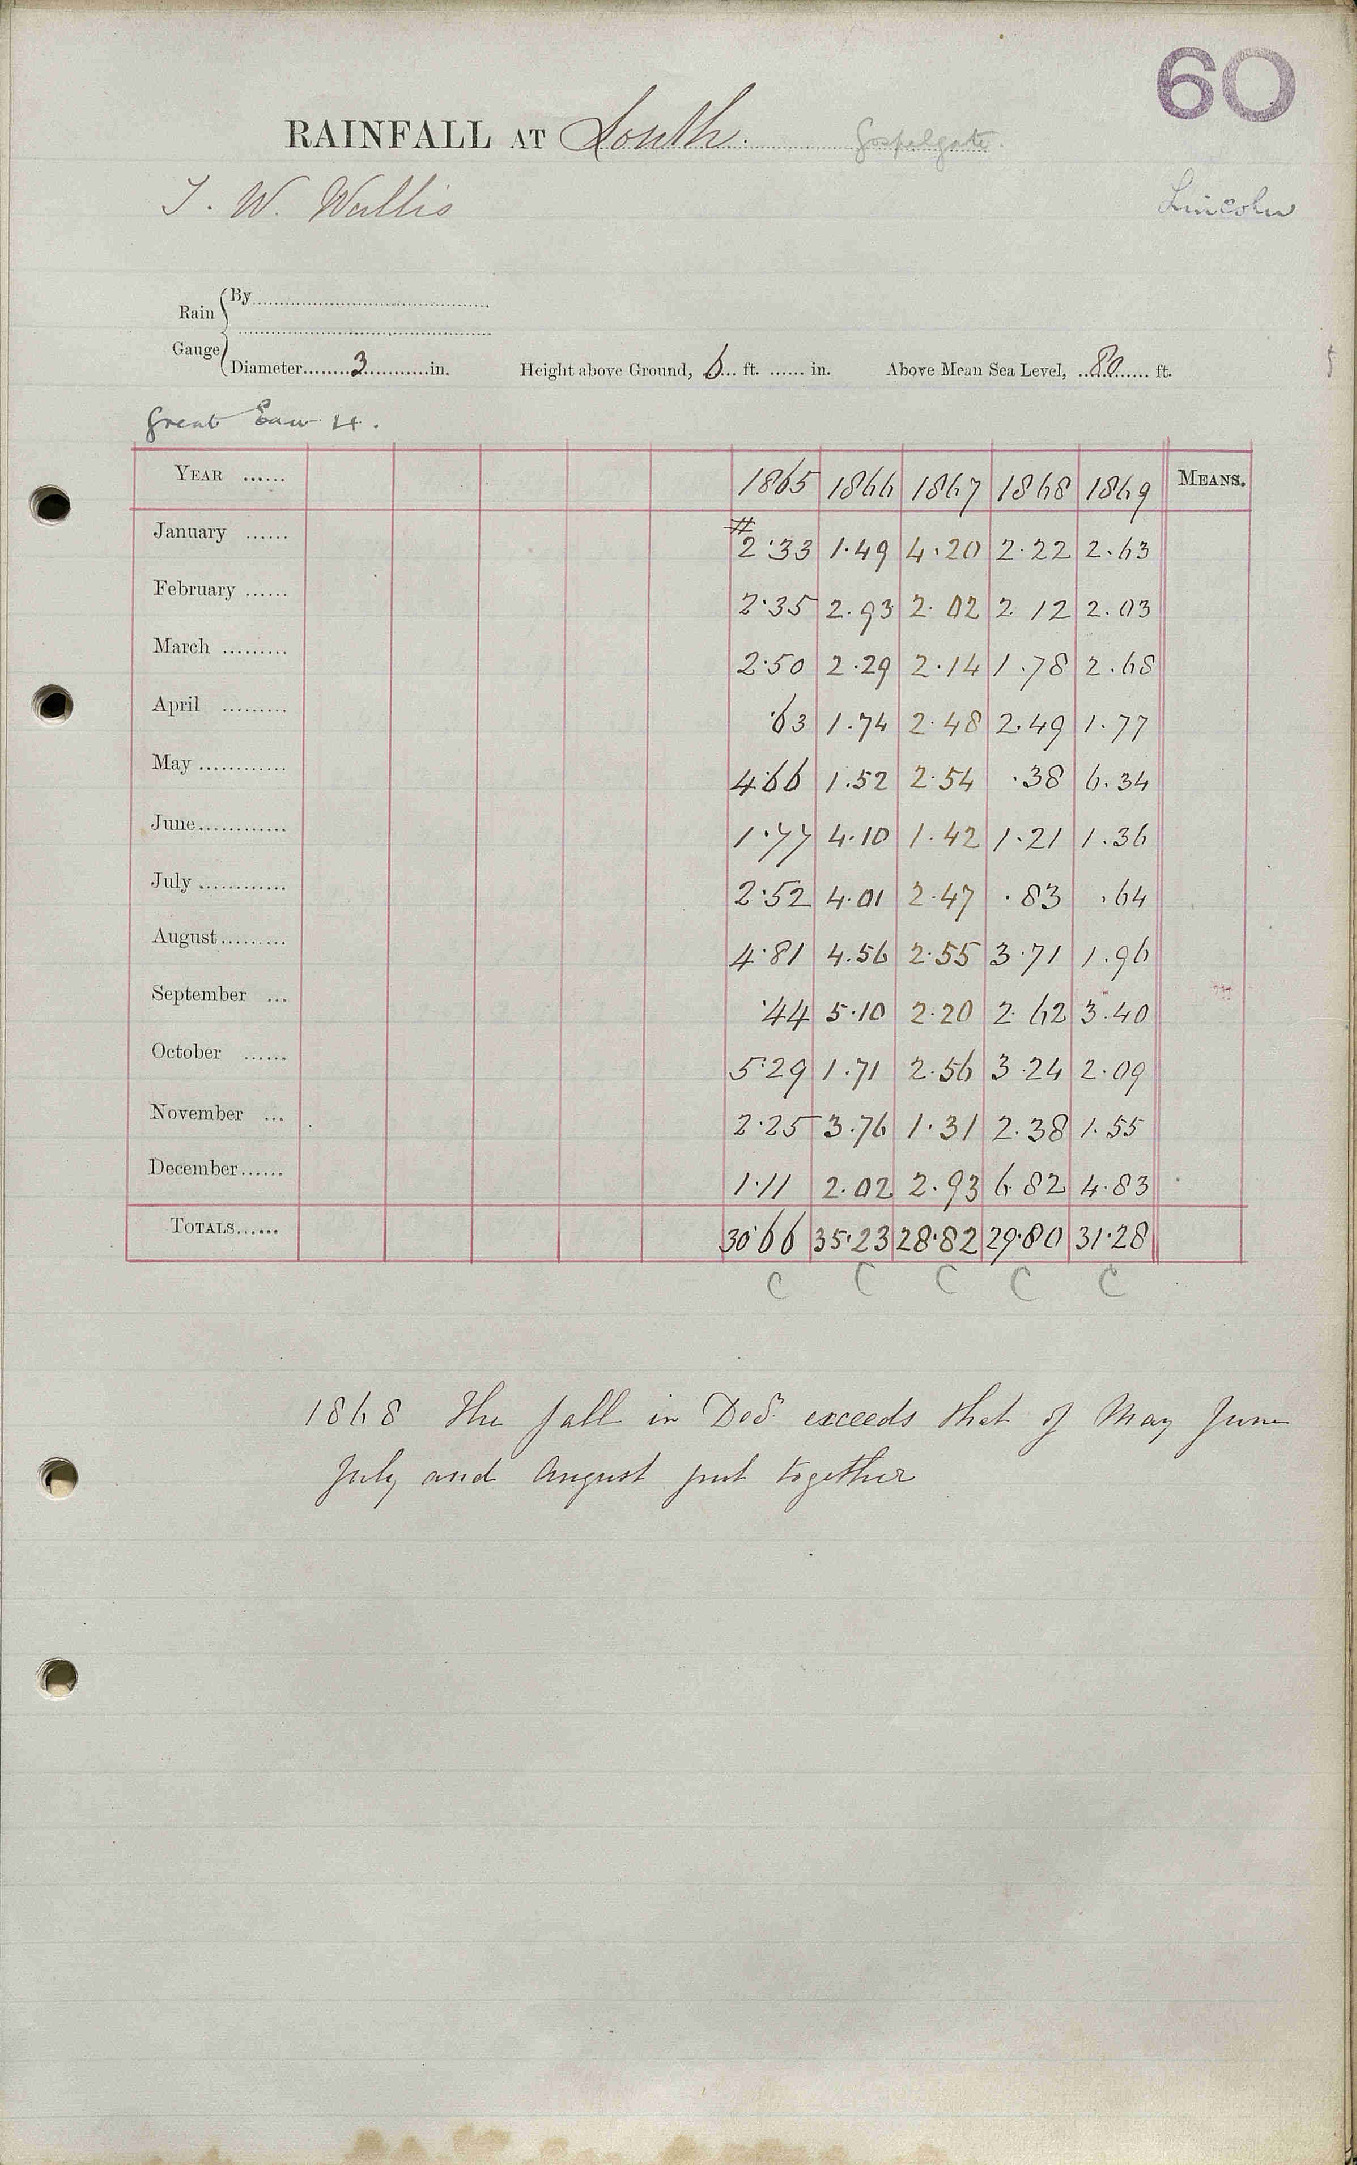 60
RAINFALL AT Louth. Gospelgate.
T. W. Wallis Lincoln
Rain Gauge { By
Diameter 3 in. Height above Ground, 6 ft. in. Above Mean Sea Level, 80 ft.
Great Eau 4.
YEAR 1865 1866 1867 1868 1869 MEANS.
#
January 2.33 1.49 4.20 2.22 2.63
February 2.35 2.93 2.02 2.12 2.03
March 2.50 2.29 2.14 1.78 2.68
April .63 1.74 2.48 2.49 1.77
May 4.66 1.52 2.54 .38 6.34
June 1.77 4.10 1.42 1.21 1.36
July 2.52 4.01 2.47 .83 .64
August 4.81 4.56 2.55 3.71 1.96
September .44 5.10 2.20 2.62 3.40
October 5.29 1.71 2.56 3.24 2.09
November 2.25 3.76 1.31 2.38 1.55
December 1.11 2.02 2.93 6.82 4.83
TOTALS 30.66 35.23 28.82 29.80 31.28
C C C C C
1868 The fall in Dec.r exceeds that of May June
July and August put together